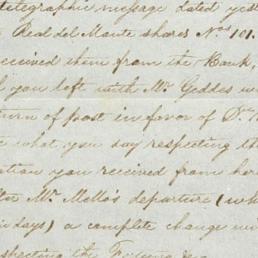 telegraphic message dated yest
Real del Monte shares Nos. 101.
received them from the Bank,
you left with Mr. Geddes w
turn of post in favor of Dn.
what you say respecting th
tion you received from her
Mr. Mello's departure (wh
days) a complete change w
specting the